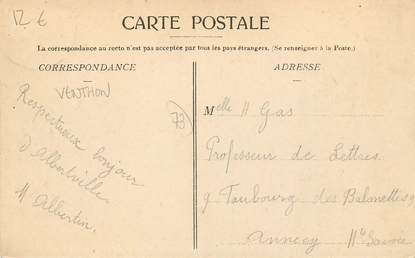 12 €
CARTE POSTALE
La correspondance au recto n'est pas acceptée par tous les pays étrangers. (Se renseigner à la Poste.)
CORRESPONDANCE
VENTHON
Respectueux bonjour
d'Albertville
H Albertin.
ADRESSE
73
Melle H Gas
Professeur de Lettres
9 Faubourg des Balmettes 9
Annecy Hte Savoie